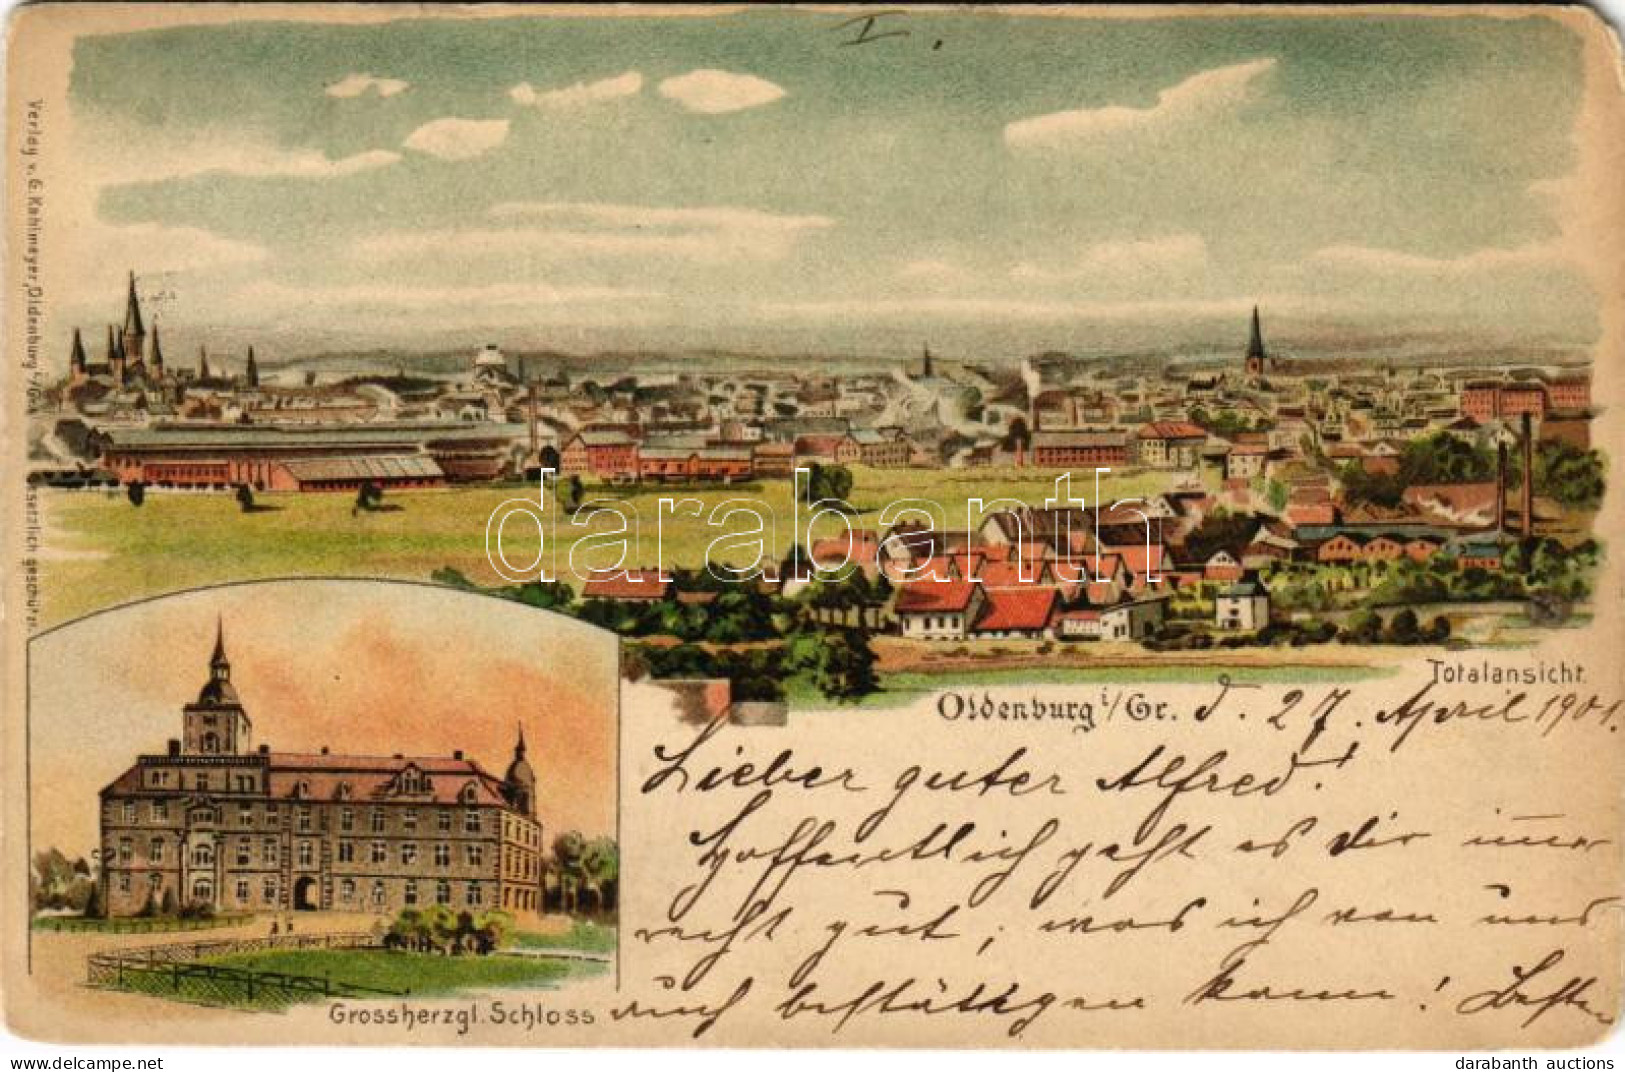 I.
Verlag v. G. Kahlmeyer, Oldenburg i/Gr.
gesetzlich geschützt.
darabanth
Totalansicht.
Oldenburg i/Gr. d. 27. April 1901.
Lieber guter Alfred!
Hoffentlich geht es Dir immer
recht gut, was ich von uns
auch bestätigen kann! Besten
Grossherzgl. Schloss
www.darabanth.net
darabanth auctions